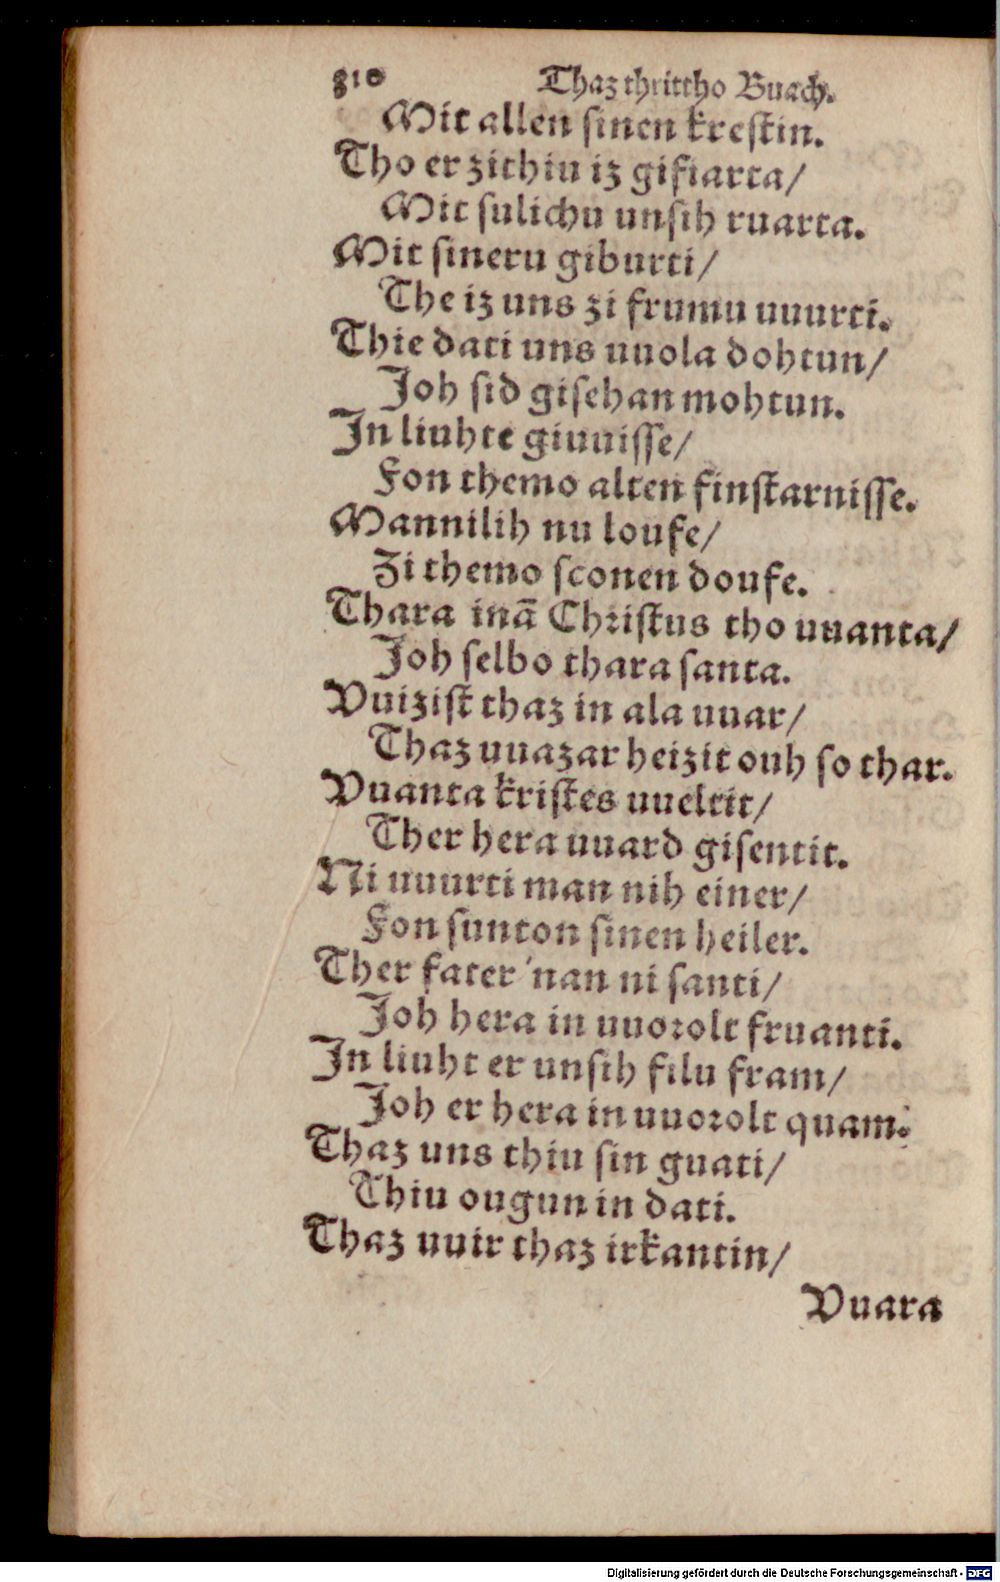 310 Thaz thrittho Buach.
Mit allen sinen kreftin.
Tho er zithiu iz gifiarta/
Mit sulichu unsih ruarta.
Mit sineru giburti/
The iz uns zi frumu uuurti.
Thie dati uns uuola dohtun/
Joh sid gisehan mohtun.
In liuhte giuuisse/
Fon themo alten finstarnisse.
Mannilih nu loufe/
Zi themo sconen doufe.
Thara inā Christus tho uuanta/
Joh selbo thara santa.
Vuizist thaz in ala uuar/
Thaz uuazar heizit ouh so thar.
Vuanta kristes uueltit/
Ther hera uuard gisentit.
Ni uuurti man nih einer/
Fon sunton sinen heiler.
Ther fater 'nan ni santi/
Joh hera in uuorolt fruanti.
In liuht er unsih filu fram/
Joh er hera in uuorolt quam.
Thaz uns thiu sin guati/
Thiu ougun in dati.
Thaz uuir thaz irkantin/
Vuara
Digitalisierung gefördert durch die Deutsche Forschungsgemeinschaft - DFG